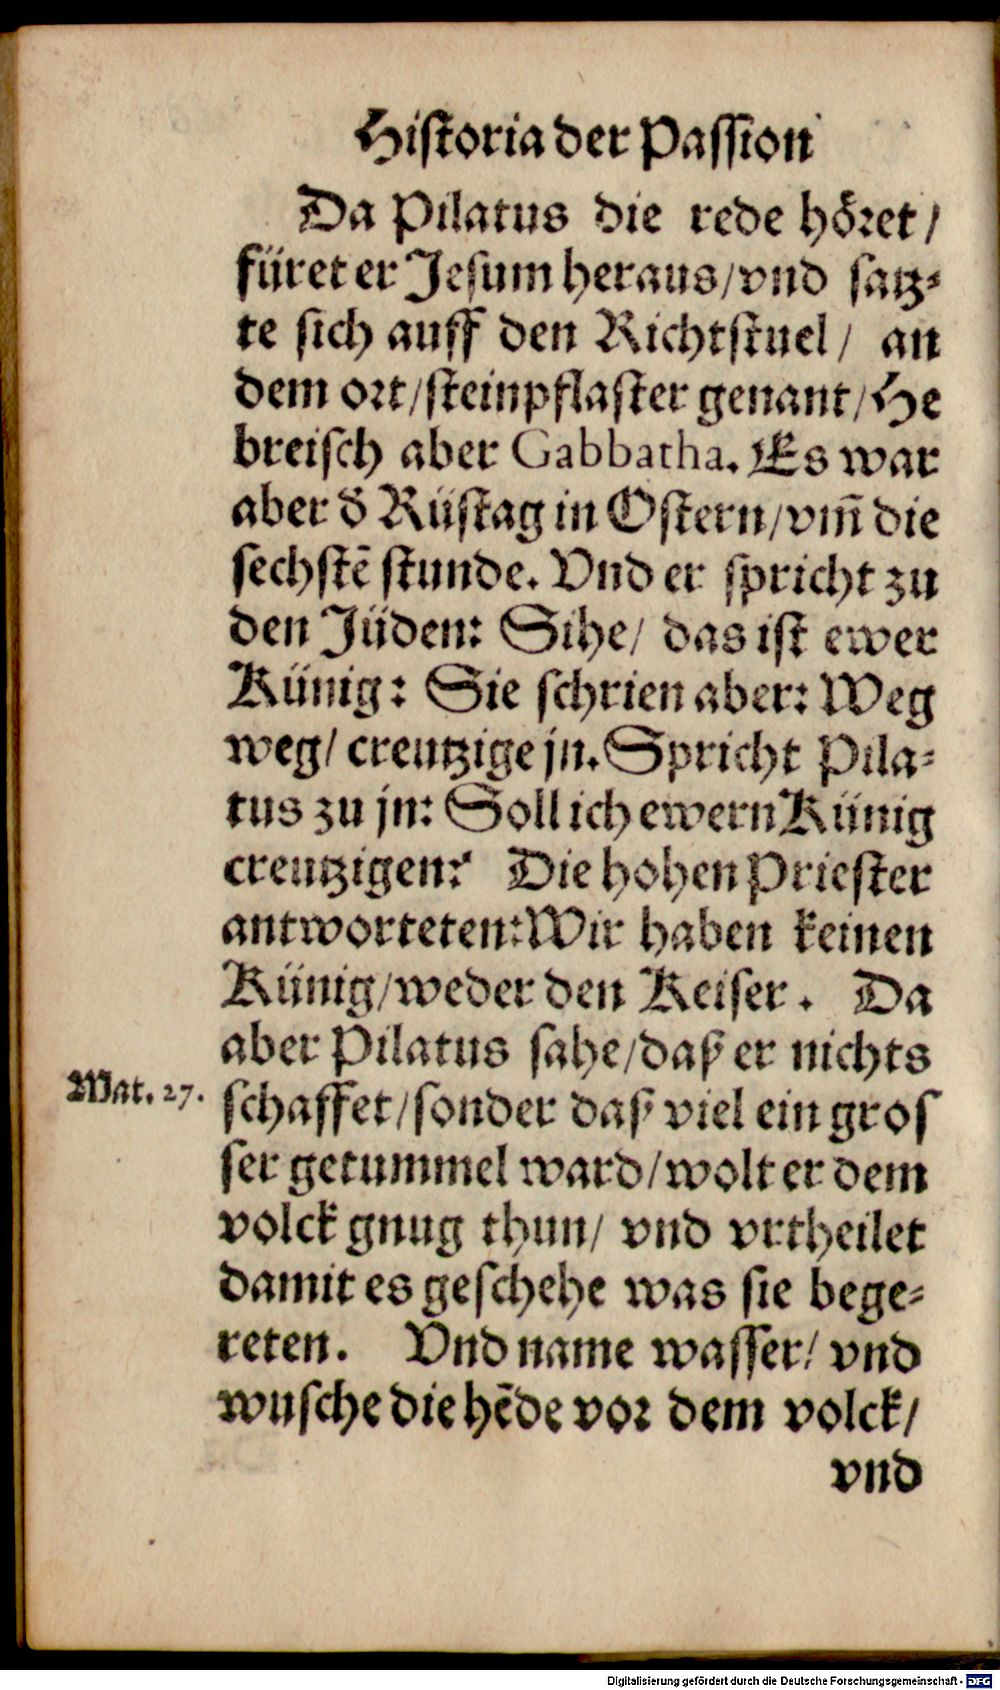 Historia der Passion
Da Pilatus die rede höret /
füret er Jesum heraus / vnd satz-
te sich auff den Richtstuel / an
dem ort / steinpflaster genant / He
breisch aber Gabbatha. Es war
aber d̄ Rüstag in Ostern / vm̄ die
sechstē stunde. Vnd er spricht zu
den Jüden: Sihe / das ist ewer
Künig: Sie schrien aber: Weg
weg / creutzige jn. Spricht Pila-
tus zu jn: Soll ich ewern Künig
creutzigen? Die hohen Priester
antworteten: Wir haben keinen
Künig / weder den Keiser. Da
aber Pilatus sahe / daß er nichts
Mat. 27. schaffet / sonder daß viel ein gros
ser getummel ward / wolt er dem
volck gnug thun / vnd vrtheilet
damit es geschehe was sie bege-
reten. Vnd name wasser / vnd
wusche die hēde vor dem volck /
vnd
Digitalisierung gefördert durch die Deutsche Forschungsgemeinschaft - DFG